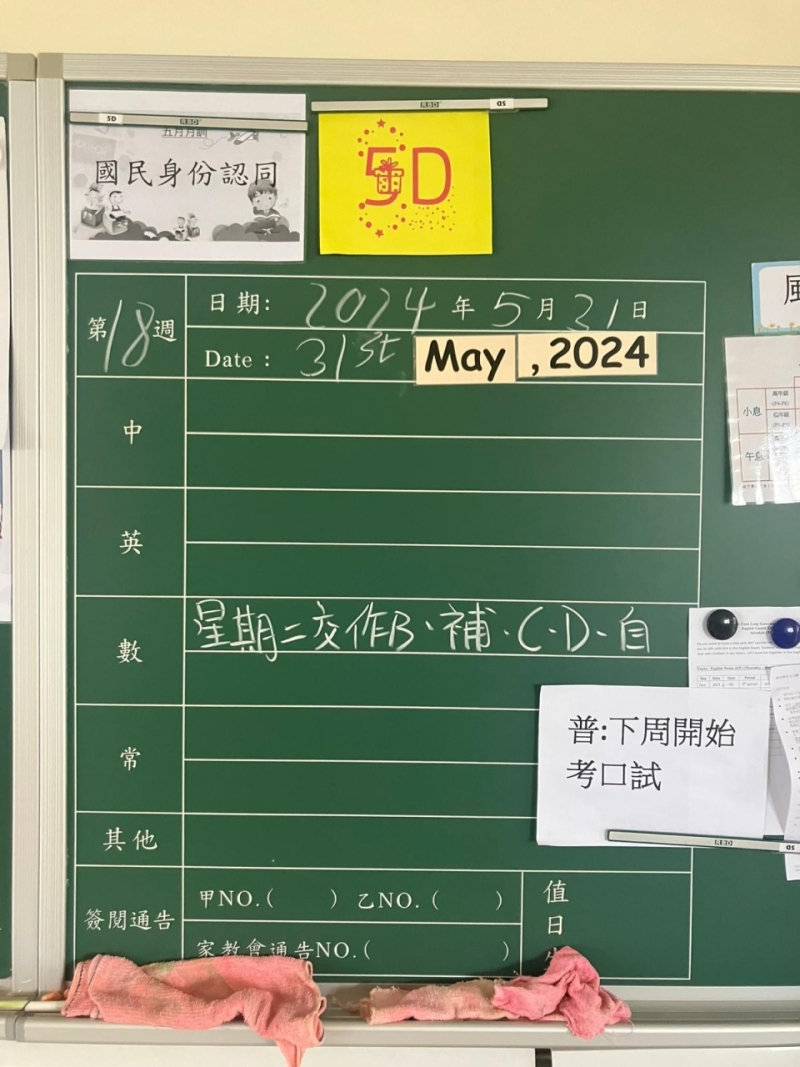 5D
RBD
RBD
as
五月月訓
國民身份認同
5D
第18週
日期: 2024年5月31日
Date : 31st May , 2024
中
英
數
星期二交作B、補、C、D、自
常
其他
簽閱通告
甲NO.( ) 乙NO.( )
家教會通告NO.( )
值日
普:下周開始
考口試
RBD
as
小息
午息